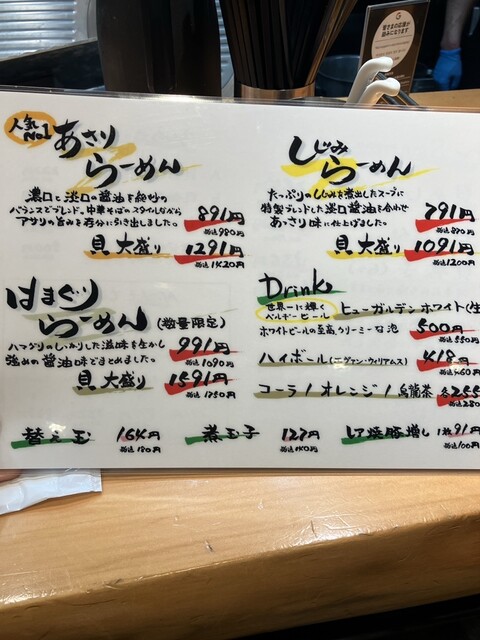 人気No.1
あさりらーめん
濃口と淡口の醤油を絶妙の
バランスでブレンド。中華そばのスタイルながら
アサリの旨みを存分に引き出しました。
891円
税込980円
貝大盛り 1291円
税込1420円
はまぐりらーめん(数量限定)
ハマグリのしっかりした滋味を生かし
強めの醤油味でまとめました。
991円
税込1090円
貝大盛り 1591円
税込1750円
しじみらーめん
たっぷりのしじみを煮出したスープに
特製ブレンドした淡口醤油を合わせ
あっさり味に仕上げました。
791円
税込870円
貝大盛り 1091円
税込1200円
Drink
世界一に輝く
ベルギービール
ヒューガルデンホワイト(生
ホワイトビールの至高、クリーミーな泡 500円
税込550円
ハイボール(エヴァン・ウィリアムス) 418円
税込460円
コーラ/オレンジ/烏龍茶 各255
税込280
替え玉 164円
税込180円
煮玉子 127円
税込140円
レア焼豚増し 1枚91円
税込100円